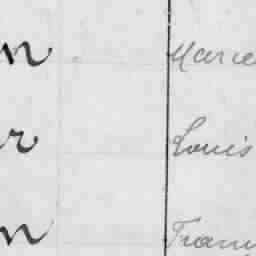 n Marie
r Louis
n Fran